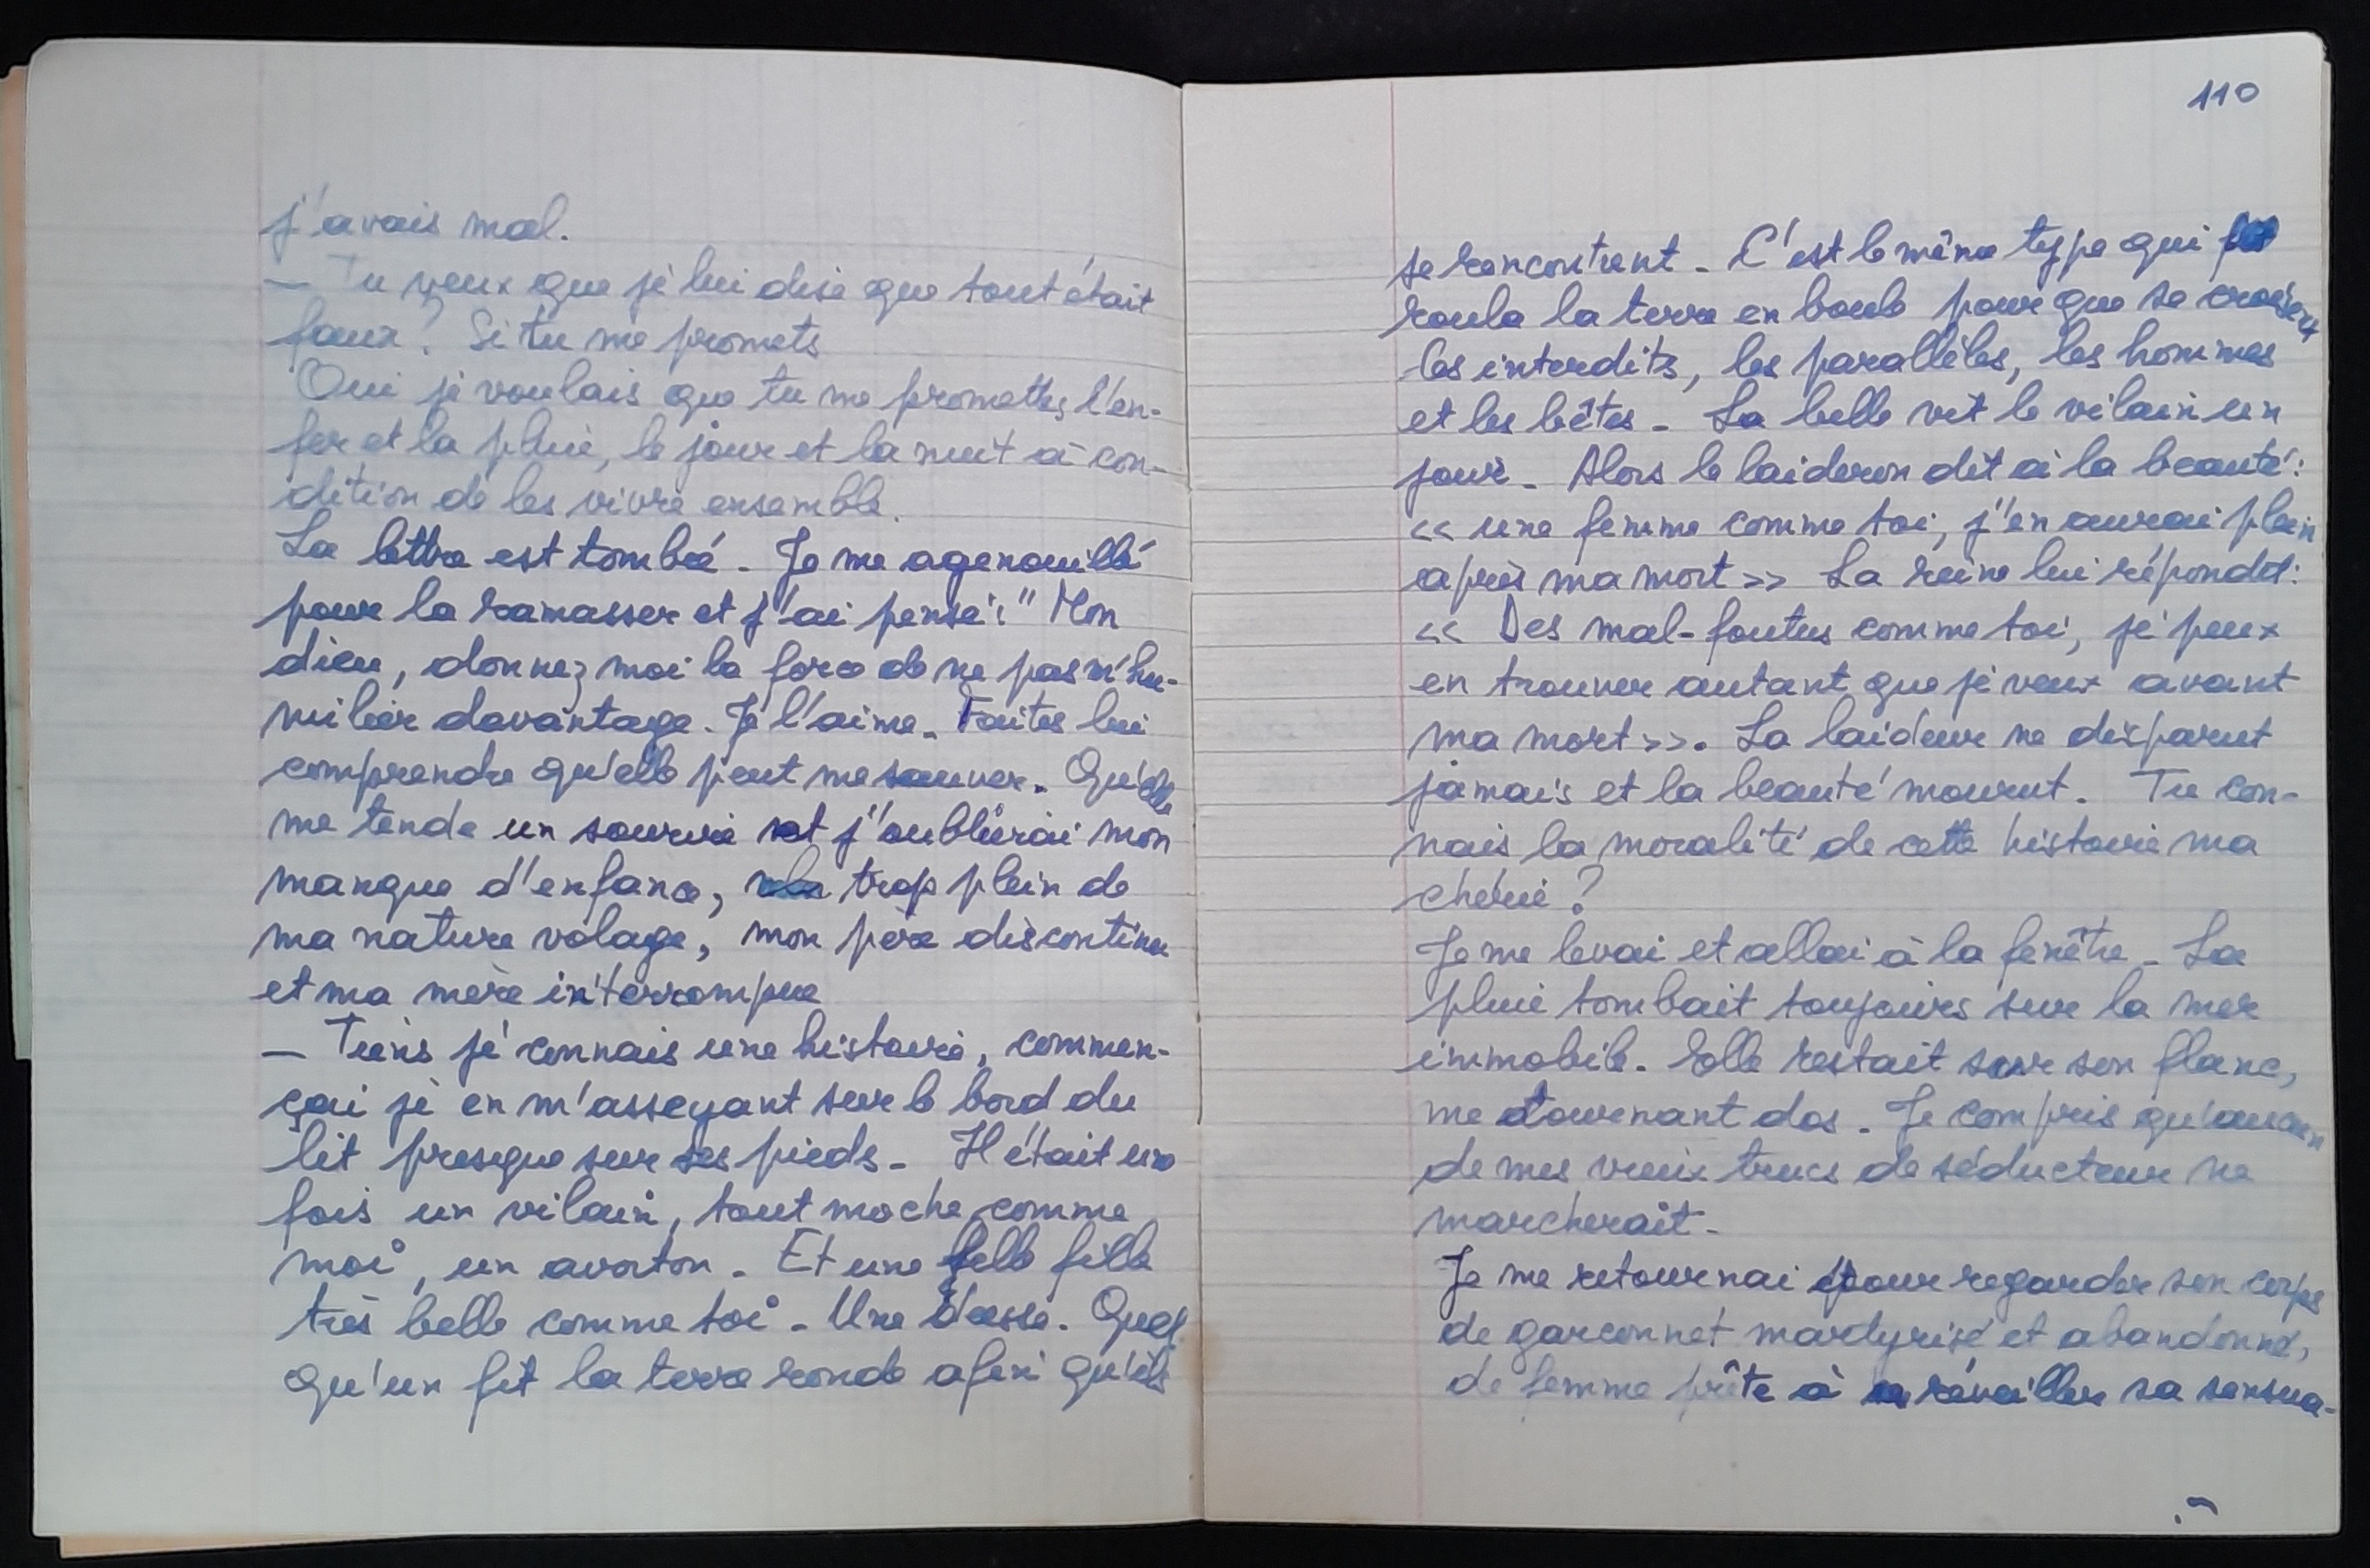 j'avais mal.
— Tu veux que je lui dise que tout était
faux? Si tu me promets
Oui je voulais que tu me promettes l'en-
fer et la pluie, le jour et la nuit à con-
dition de les vivre ensemble.
La lettre est tombée. Je me agenouillé
pour la ramasser et j'ai pensé: "Mon
dieu, donnez moi la force de ne pas m'hu-
milier davantage. Je l'aime. Faites lui
comprendre qu'elle peut me sauver. Qu'elle
me tende un sourire et j'oublierai mon
manque d'enfance, trop plein de
ma nature volage, mon père discontinu
et ma mère interrompue
— Tiens je connais une histoire, commen-
çai je en m'asseyant sur le bord du
lit presque sur ses pieds. Il était une
fois un vilain, tout moche comme
moi, un avorton. Et une fille
très belle comme toi. Une déesse. Quel
qu'un fit la terre ronde afin qu'ils
110
se rencontrent. C'est le même type qui
roula la terre en boule pour que se croisent
les interdits, les parallèles, les hommes
et les bêtes. La belle vit le vilain un
jour. Alors le laideron dit à la beauté:
<< une femme comme toi, j'en aurai plein
après ma mort >> La reine lui répondit:
<< Des mal-foutus comme toi, je peux
en trouver autant que je veux avant
ma mort >>. La laideur ne disparut
jamais et la beauté mourut. Tu con-
nais la moralité de cette histoire ma
chérie?
Je me levai et allai à la fenêtre. La
pluie tombait toujours sur la mer
immobile. Elle restait sur son flanc,
me tournant dos. Je compris qu'aucun
de mes vieux trucs de séducteur ne
marcherait.
Je me retournai pour regarder son corps
de garçonnet martyrisé et abandonné,
de femme prête à réveiller sa sensua-